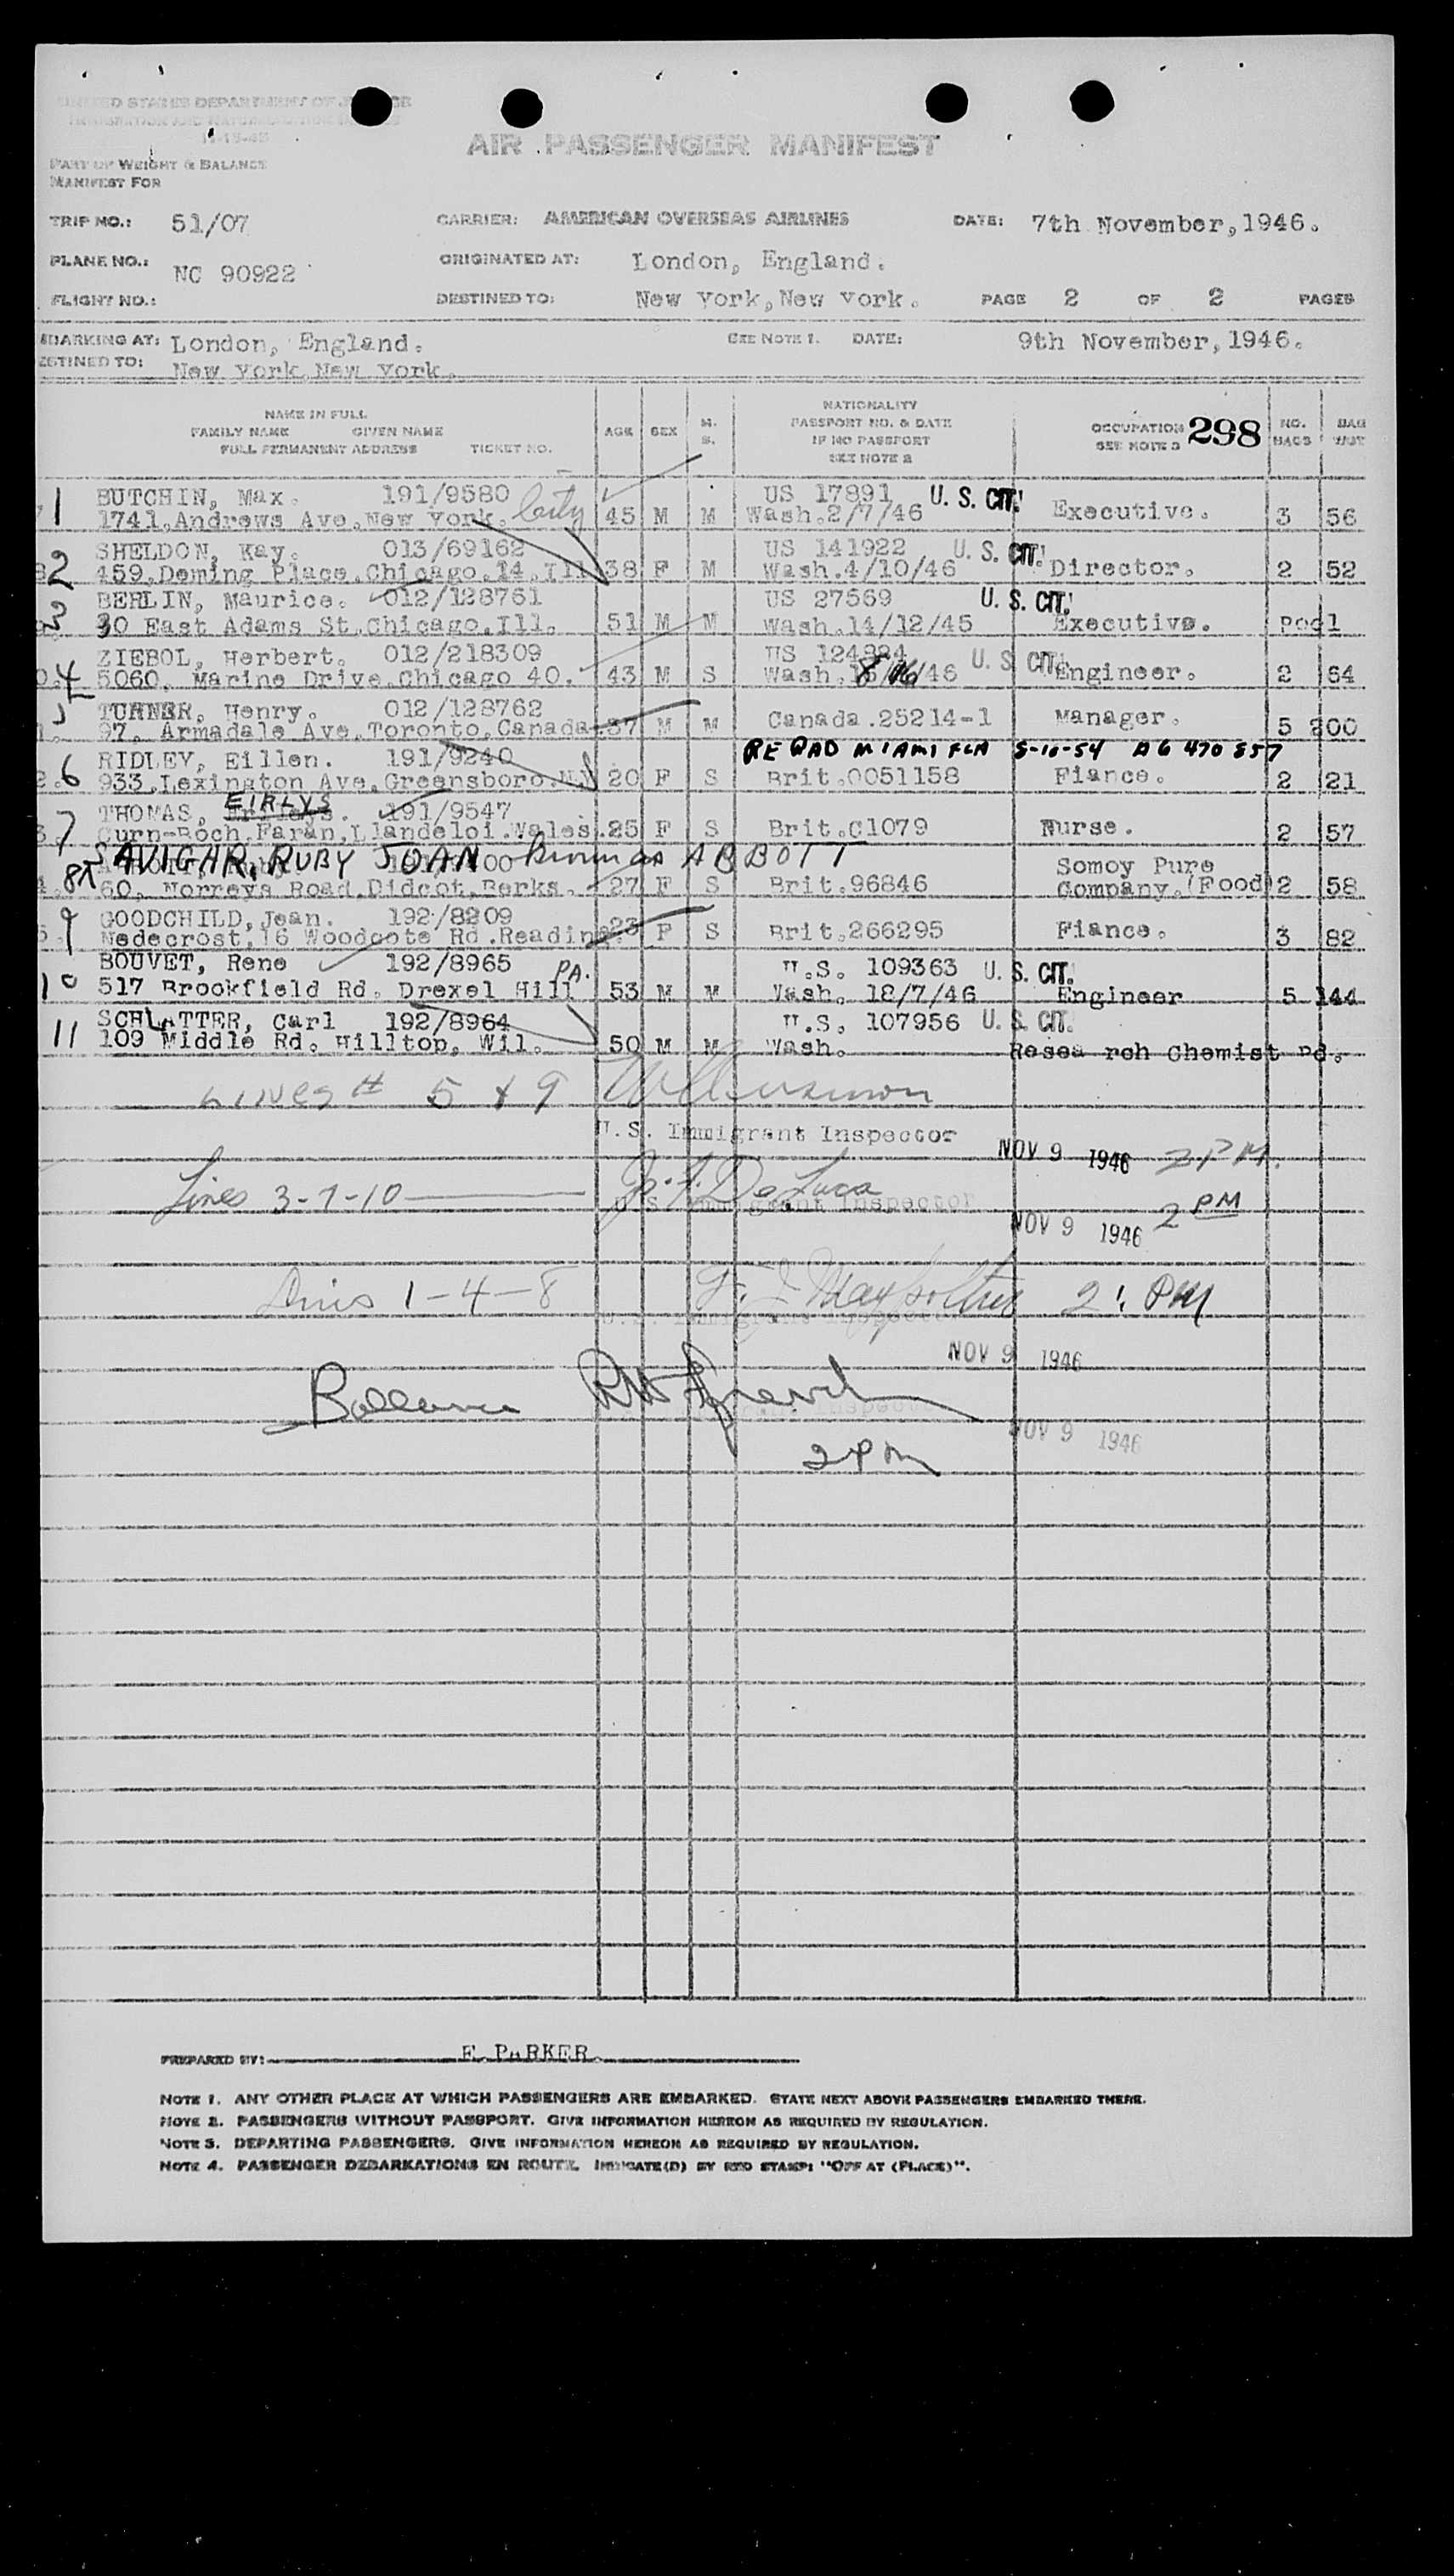 UNITED STATES DEPARTMENT OF JUSTICE
AIR PASSENGER MANIFEST
PART OF WEIGHT & BALANCE
MANIFEST FOR
TRIP NO.: 51/07 CARRIER: AMERICAN OVERSEAS AIRLINES DATE: 7th November,1946.
PLANE NO.: NC 90922 ORIGINATED AT: London, England.
FLIGHT NO.: DESTINED TO: New York,New York. PAGE 2 OF 2 PAGES
BARKING AT: London, England. SEE NOTE 1. DATE: 9th November,1946.
ESTINED TO: New York New York.
NAME IN FULL
FAMILY NAME GIVEN NAME
FULL PERMANENT ADDRESS TICKET NO.
AGE SEX M. S.
NATIONALITY
PASSPORT NO. & DATE
IF NO PASSPORT
SEE NOTE 2
OCCUPATION 298
SEE NOTE 3
NO. BAGS BAG WGT
1 BUTCHIN, Max. 191/9580 US 17891 U. S. CIT.
1741,Andrews Ave,New York. City 45 M M Wash.2/7/46 Executive. 3 56
2 SHELDON, Kay. 013/69162 US 141922 U. S. CIT.
459,Deming Place,Chicago.14.Ill 38 F M Wash.4/10/46 Director. 2 52
3 BERLIN, Maurice. 012/128761 US 27569 U. S. CIT.
30 East Adams St.Chicago.Ill. 51 M M Wash.14/12/45 Executive. Pool
4 ZIEBOL, Herbert. 012/218309 US U. S. CIT.
5060, Marine Drive.Chicago 40. 43 M S Wash. /46 Engineer. 2 64
5 TURNER, Henry. 012/128762
97, Armadale Ave.Toronto,Canada 37 M M Canada.25214-1 Manager. 5 200
RE QAD MIAMI FLA 5-10-54 A6 470 857
6 RIDLEY, Eillen. 191/9240
933,Lexington Ave,Greensboro. 20 F S Brit.0051158 Fiance. 2 21
7 THOMAS, EIRLYS 191/9547
Curn-Roch.Faran.Llandeloi.Wales.25 F S Brit.C1079 Nurse. 2 57
8 SAVIGHR, RUBY JOAN ABBOTT
60, Norreys Road,Didcot,Berks. 27 F S Brit.96846 Somoy Pure Company.(Food) 2 58
9 GOODCHILD,Jean. 192/8209
Nedecrost,16 Woodcote Rd.Reading. 23 F S Brit.266295 Fiance. 3 82
10 BOUVET, Rene 192/8965 U.S. 109363 U. S. CIT.
517 Brookfield Rd. Drexel Hill PA. 53 M M Wash. 18/7/46 Engineer 5 144
11 SCHLATTER, Carl 192/8964 U.S. 107956 U. S. CIT.
109 Middle Rd. Hilltop, Wil. 50 M M Wash. Resea rch Chemist Pd.
LINES # 5 & 9
U.S. Immigrant Inspector NOV 9 1946 2 PM.
Lines 3-7-10 J. F. De Luca
U S Immigrant Inspector NOV 9 1946 2 PM
1-4-8 2: PM
U.S. Immigrant Inspector
NOV 9 1946
NOV 9 1946
2 PM
PREPARED BY: E.PARKER.
NOTE 1. ANY OTHER PLACE AT WHICH PASSENGERS ARE EMBARKED. STATE NEXT ABOVE PASSENGERS EMBARKED THERE.
NOTE 2. PASSENGERS WITHOUT PASSPORT. GIVE INFORMATION HEREON AS REQUIRED BY REGULATION.
NOTE 3. DEPARTING PASSENGERS. GIVE INFORMATION HEREON AS REQUIRED BY REGULATION.
NOTE 4. PASSENGER DEBARKATIONS EN ROUTE. INDICATE(D) BY RED STAMP: "OFF AT (PLACE)".